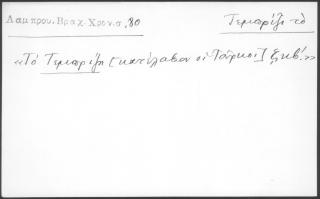 Λαμπρου. Βραχ. Χρον. σ. 80
Τεμαρίζι τὸ
«Τὸ Τεμαρίζι [κατέλαβον οἱ Τοῦρκοι] ξκβ΄.»